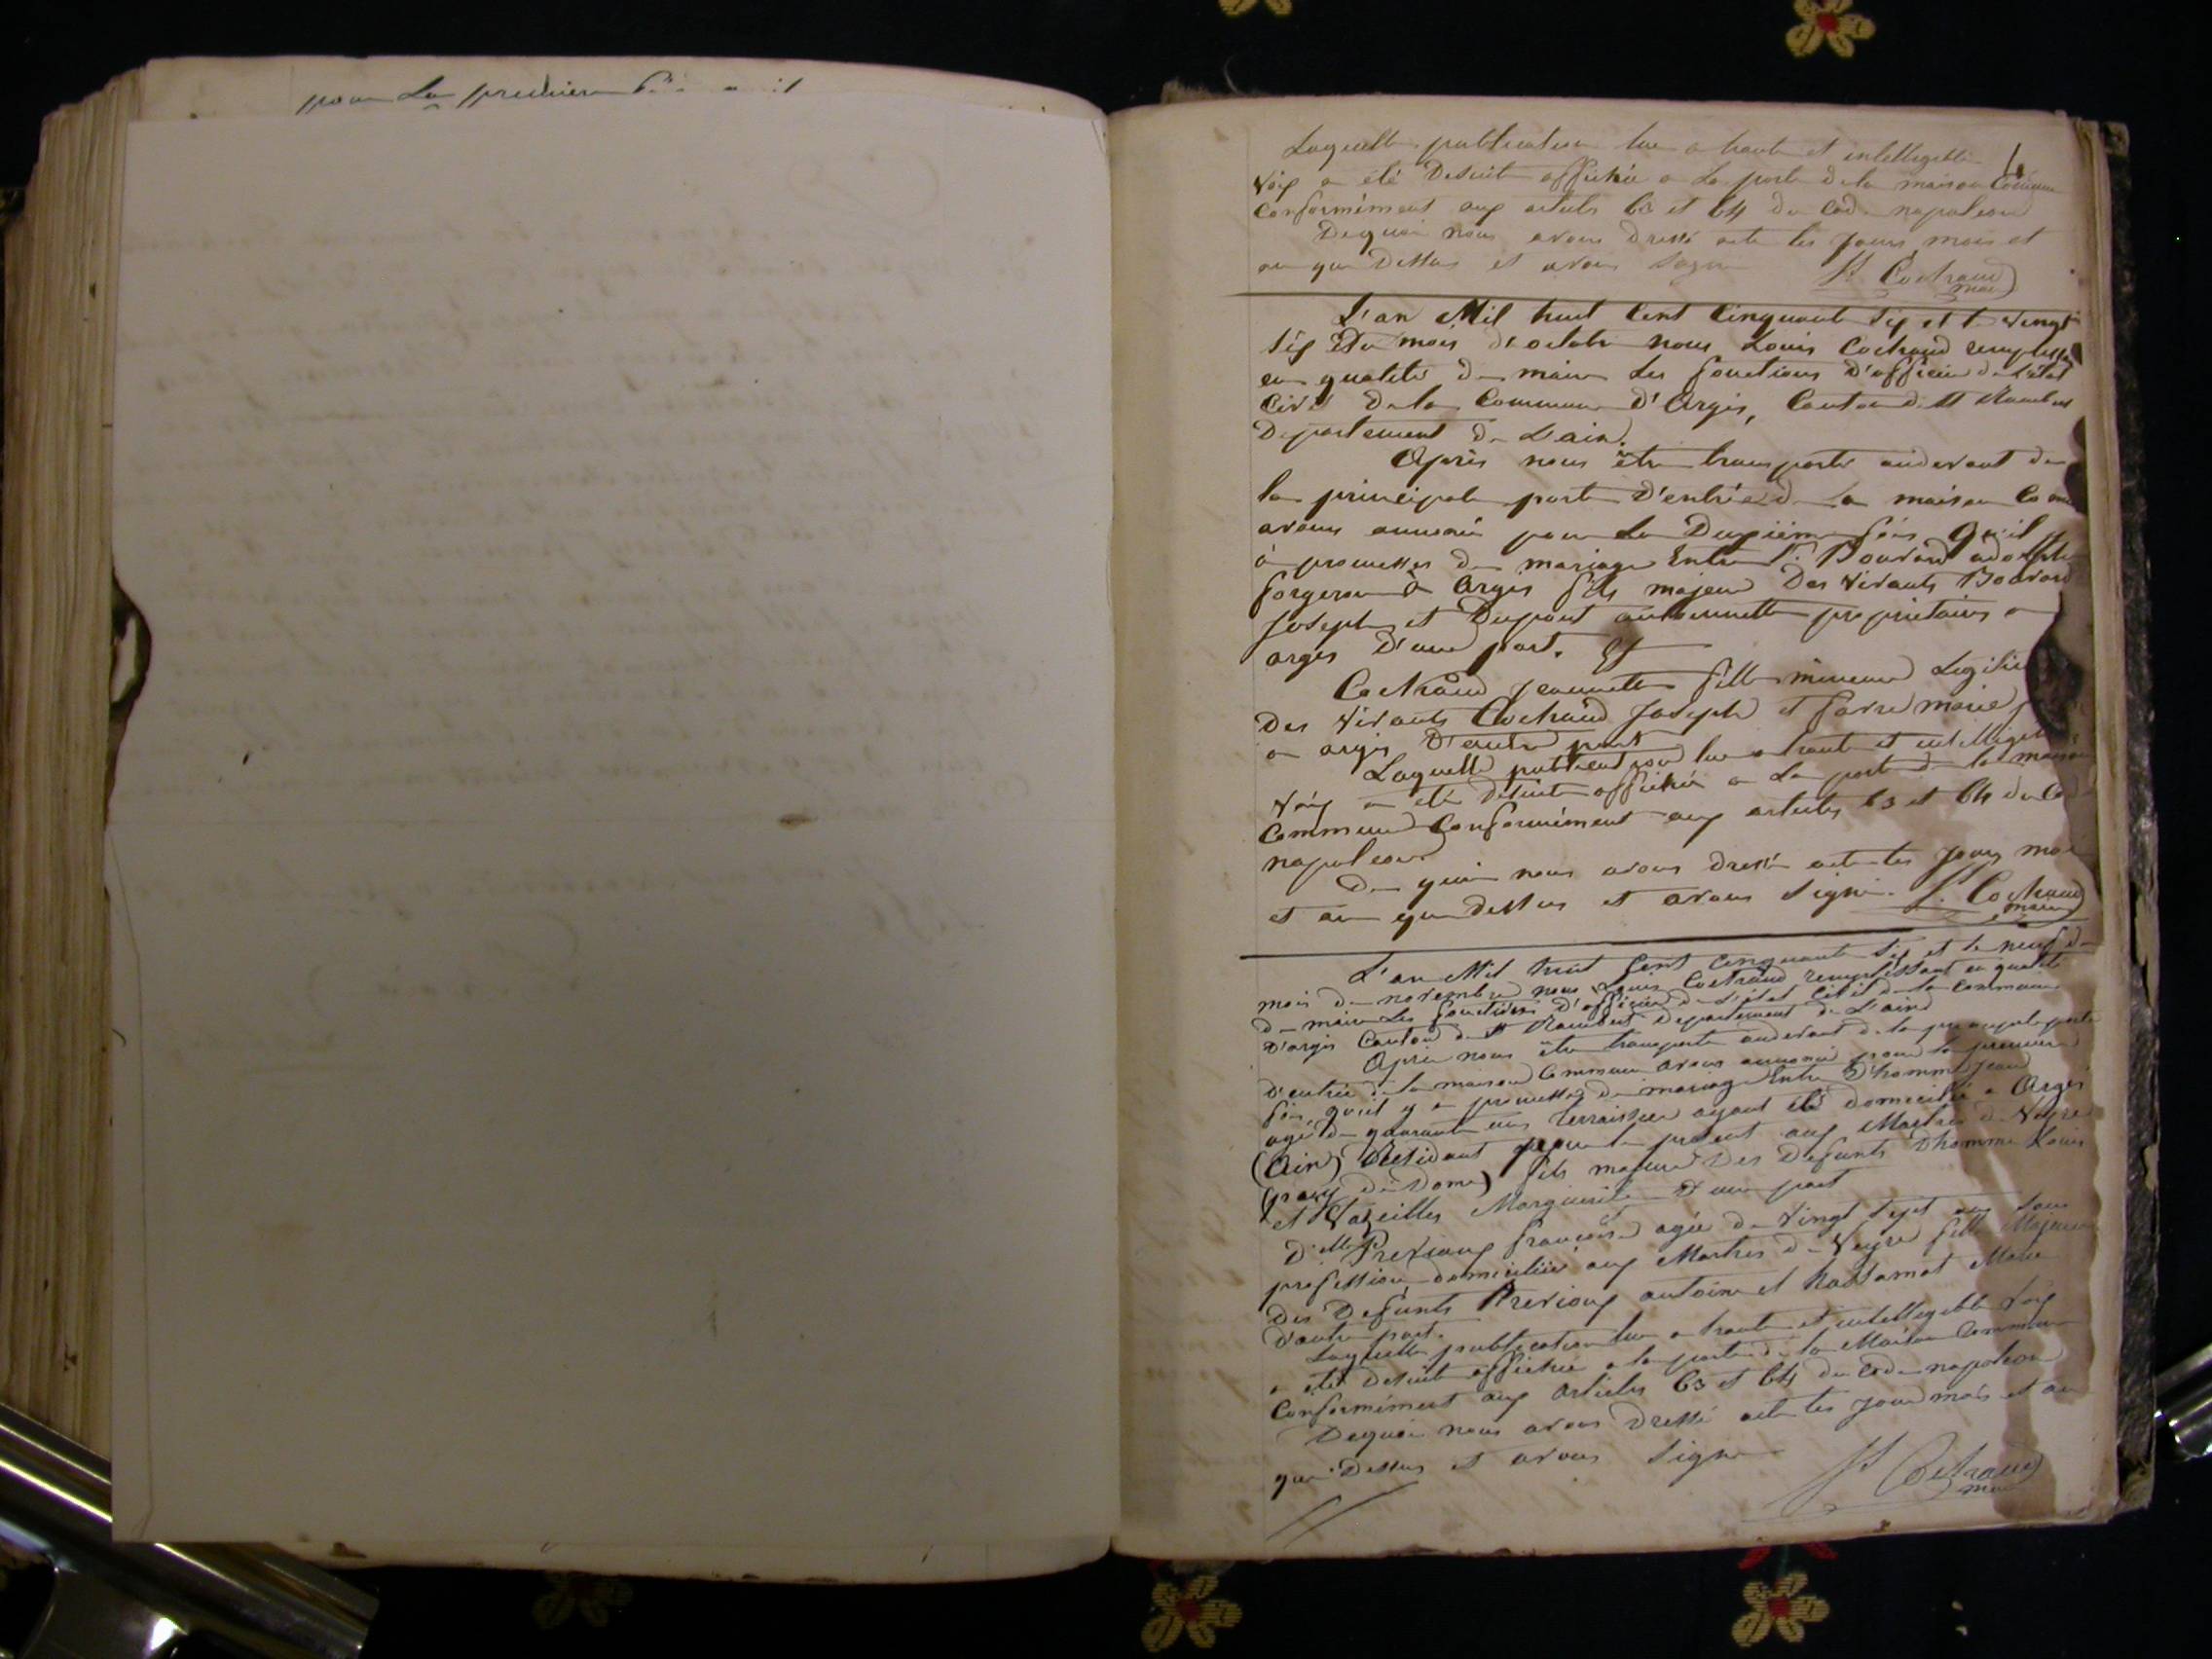 pour La premiere
Laquelle publication lue a haute et intellegible
Voix a été Desuite affichée a La porte de la maison Comune
Conformément aux articles 63 et 64 du Code napoleon
Dequoi nous avons dressé acte les jours mois et
an que Dessus et avons signé
maire
L'an Mil huit Cent Cinquante Six et le vingt
Six du mois d'octobre nous Louis Cochaud
en qualité de maire Les fonctions d'officier de L'état
Civil De la Commune d'Argis, Canton de St Rambert
Département de L'ain.
Après nous être transporté audevant de
la principale porte d'entrée de la maison
avons annoncé pour La Duxième fois qu'il
à promesses de mariage Entre Sr. Bovard adolphe
forgeron à Argis fils majeur Des vivants Bovard
Joseph et Dupont anthonnette propriétaires a
argis D'une part. Et
Cochaud jeannette fille mineure Legitim
Des vivants Cochaud Joseph et Favre marie
a argis D'autre part
Laquelle publication lue a haute et intellegible
Voix a été Desuite affichée a La porte de la maison
Commune Conformément aux articles 63 et 64 du Cod
napoleon
De quoi nous avons dressé acte les jours moi
et an que dessus et avons signé. Cochaud
maire
L'an Mil huit Cent Cinquante Six et le neuf du
mois de novembre nous Louis Cochaud remplissant en qualité
de maire Les fonctions D'officier de L'état Civil de la Commune
D'argis Canton de St Rambert Departement de L'ain
Après nous être transporté audevant de la principale porte
d'entrée de la maison Commune avons annoncé pour la premiere
fois qu'il y a promesses de mariage Entre D'homme Jean
agé de quarante ans terrassier ayant été domicilié a Argis
(Ain) Résidant pour le présent aux Martres de Veyre
(puy de Dome) fils majeur Des Defunts Dhomme Louis
et Vazeilles Marguerite D'une part
et
D'elle Prevoux françoise agée de vingt sept ans sans
profession domiciliée aux Martres de Veyre fille Majeure
Des Defunts Prevoux antoine et Marie
D'autre part.
Laquelle publication lue a haute et intellegible Voix
a été Desuite affichée a la porte de la Maison Commune
Conformément aux articles 63 et 64 du Code napoleon
Dequoi nous avons dressé acte les jour mois et an
que Dessus et avons signé
maire